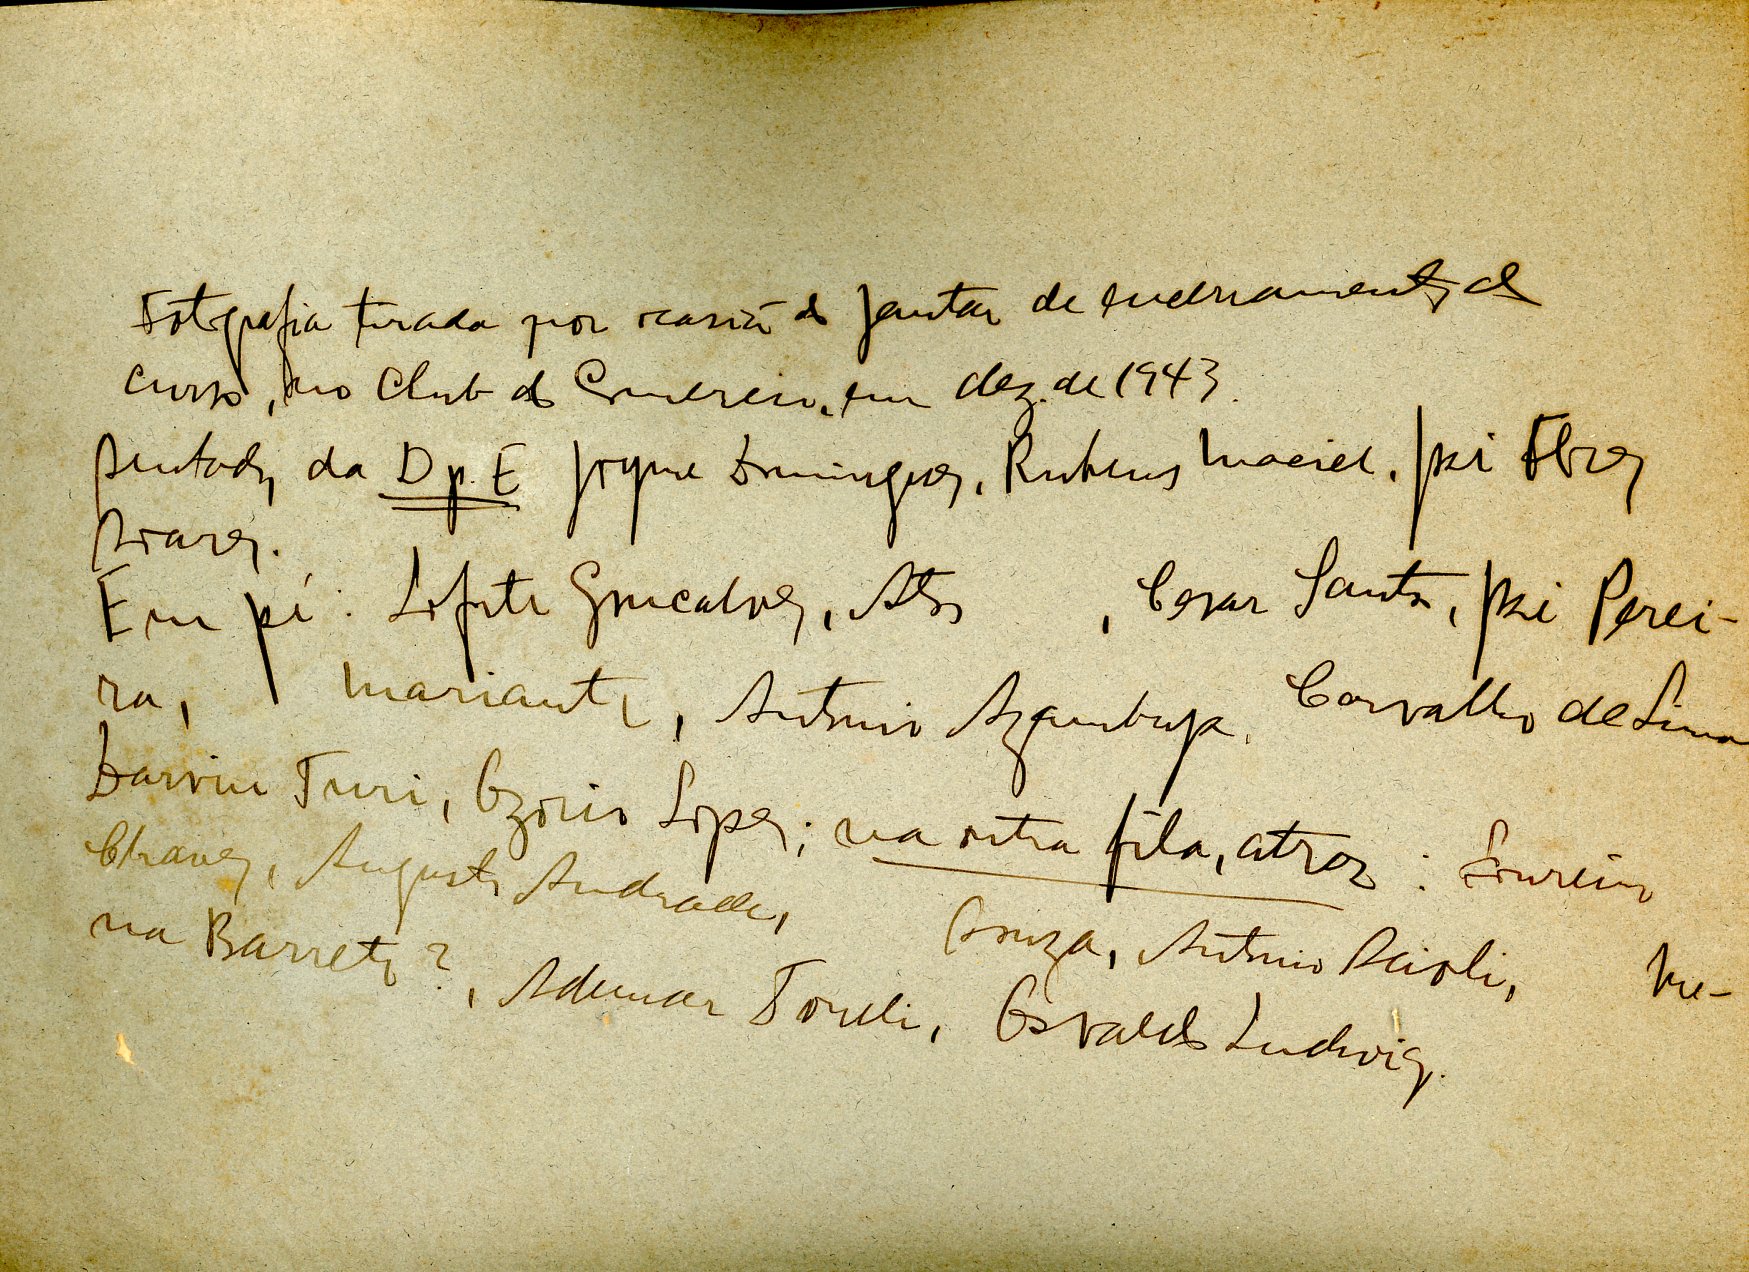 Fotografia tirada por ocasião do jantar de encerramento do
curso, no Club do Comercio, em dez. de 1943.
Sentados, da D p. E Jayme Domingues, Rubens Maciel, José Flores
Soares.
Em pé: Lafite Goncalves, Atos , Cesar Santos, José Perei-
ra, Mariante, Antonio Azambuja, Carvalho de Lima
Darvin Turi, Ozorio Lopes; na outra fila, atraz: Loureiro
Chaves, Augusto Andrade, Souza, Antonio Acioli, Me-
na Barreto?, Ademar Toreli, Osvaldo Ludwig.